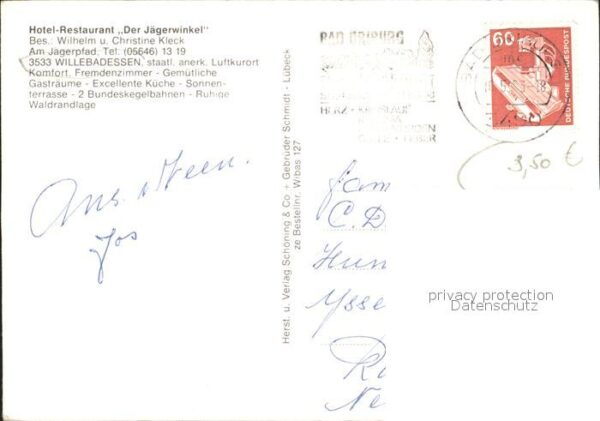 Hotel-Restaurant „Der Jägerwinkel"
Bes.: Wilhelm u. Christine Kleck
Am Jägerpfad, Tel. (05646) 13 19
3533 WILLEBADESSEN, staatl. anerk. Luftkurort
Komfort. Fremdenzimmer - Gemütliche
Gasträume - Excellente Küche - Sonnen-
terrasse - 2 Bundeskegelbahnen - Ruhige
Waldrandlage
Jos
Herst. u. Verlag Schöning & Co + Gebrüder Schmidt - Lübeck
ze Bestellnr. Wibas 127
BAD DRIBURG
HERZ - KREISLAUF
60
DEUTSCHE BUNDESPOST
3,50 €
fam
C. D
Hun
Ysse
Ne
privacy protection
Datenschutz